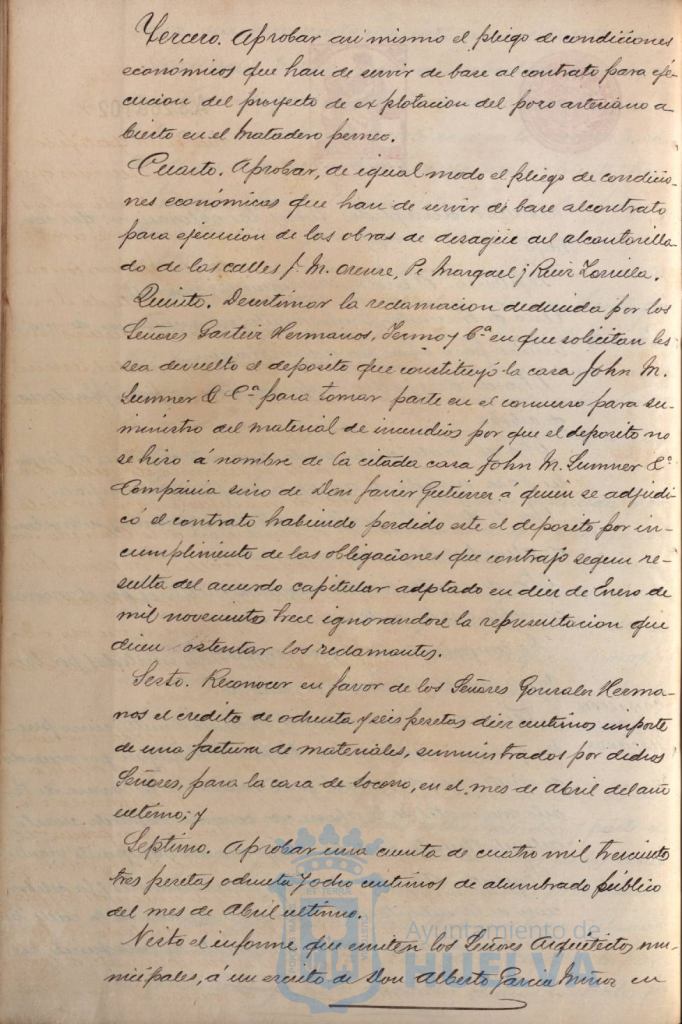 Tercero. Aprobar asi mismo el pliego de condiciones
económicas que han de servir de base al contrato para eje-
cucion del proyecto de explotacion del pozo artesiano a-
bierto en el Matadero perneo.
Cuarto. Aprobar, de igual modo el pliego de condicio-
nes económicas que han de servir de base al contrato
para ejecucion de las obras de desagüe del alcantarilla-
do de las calles J. M. Orense, Pi Margael y Ruiz Zorrilla.
Quinto. Desestimar la reclamacion deducida por los
Señores Hermanos, y Cª en que solicitan les
sea devuelto el deposito que constituyó la casa John M.
Sumner & Cª para tomar parte en el concurso para su-
ministro del material de incendios por que el deposito no
se hizo á nombre de la citada casa John M. Sumner &ª
Compañia sino de Don Javier Gutierrez á quien se adjudi-
có el contrato habiendo perdido este el deposito por in-
cumplimiento de las obligaciones que contrajo segun re-
sulta del acuerdo capitular adptado en diez de Enero de
mil novecientos trece ignorandose la representacion que
dicen ostentar los reclamantes.
Sexto. Reconocer en favor de los Señores Gonzalez Herma-
nos el credito de ochenta y seis pesetas diez centimos importe
de una factura de materiales, suministrados por dichos
Señores, para la casa de Socorro, en el mes de Abril del año
ultimo; y
Septimo. Aprobar una cuenta de cuatro mil trescientas
tres pesetas ochenta y ocho centimos de alumbrado público
del mes de Abril ultimo.
Visto el informe que emiten los Señores Arquitectos mu-
nicipales, á un escrito de Don Alberto Garcia Muñoz en
Ayuntamiento de
HUELVA